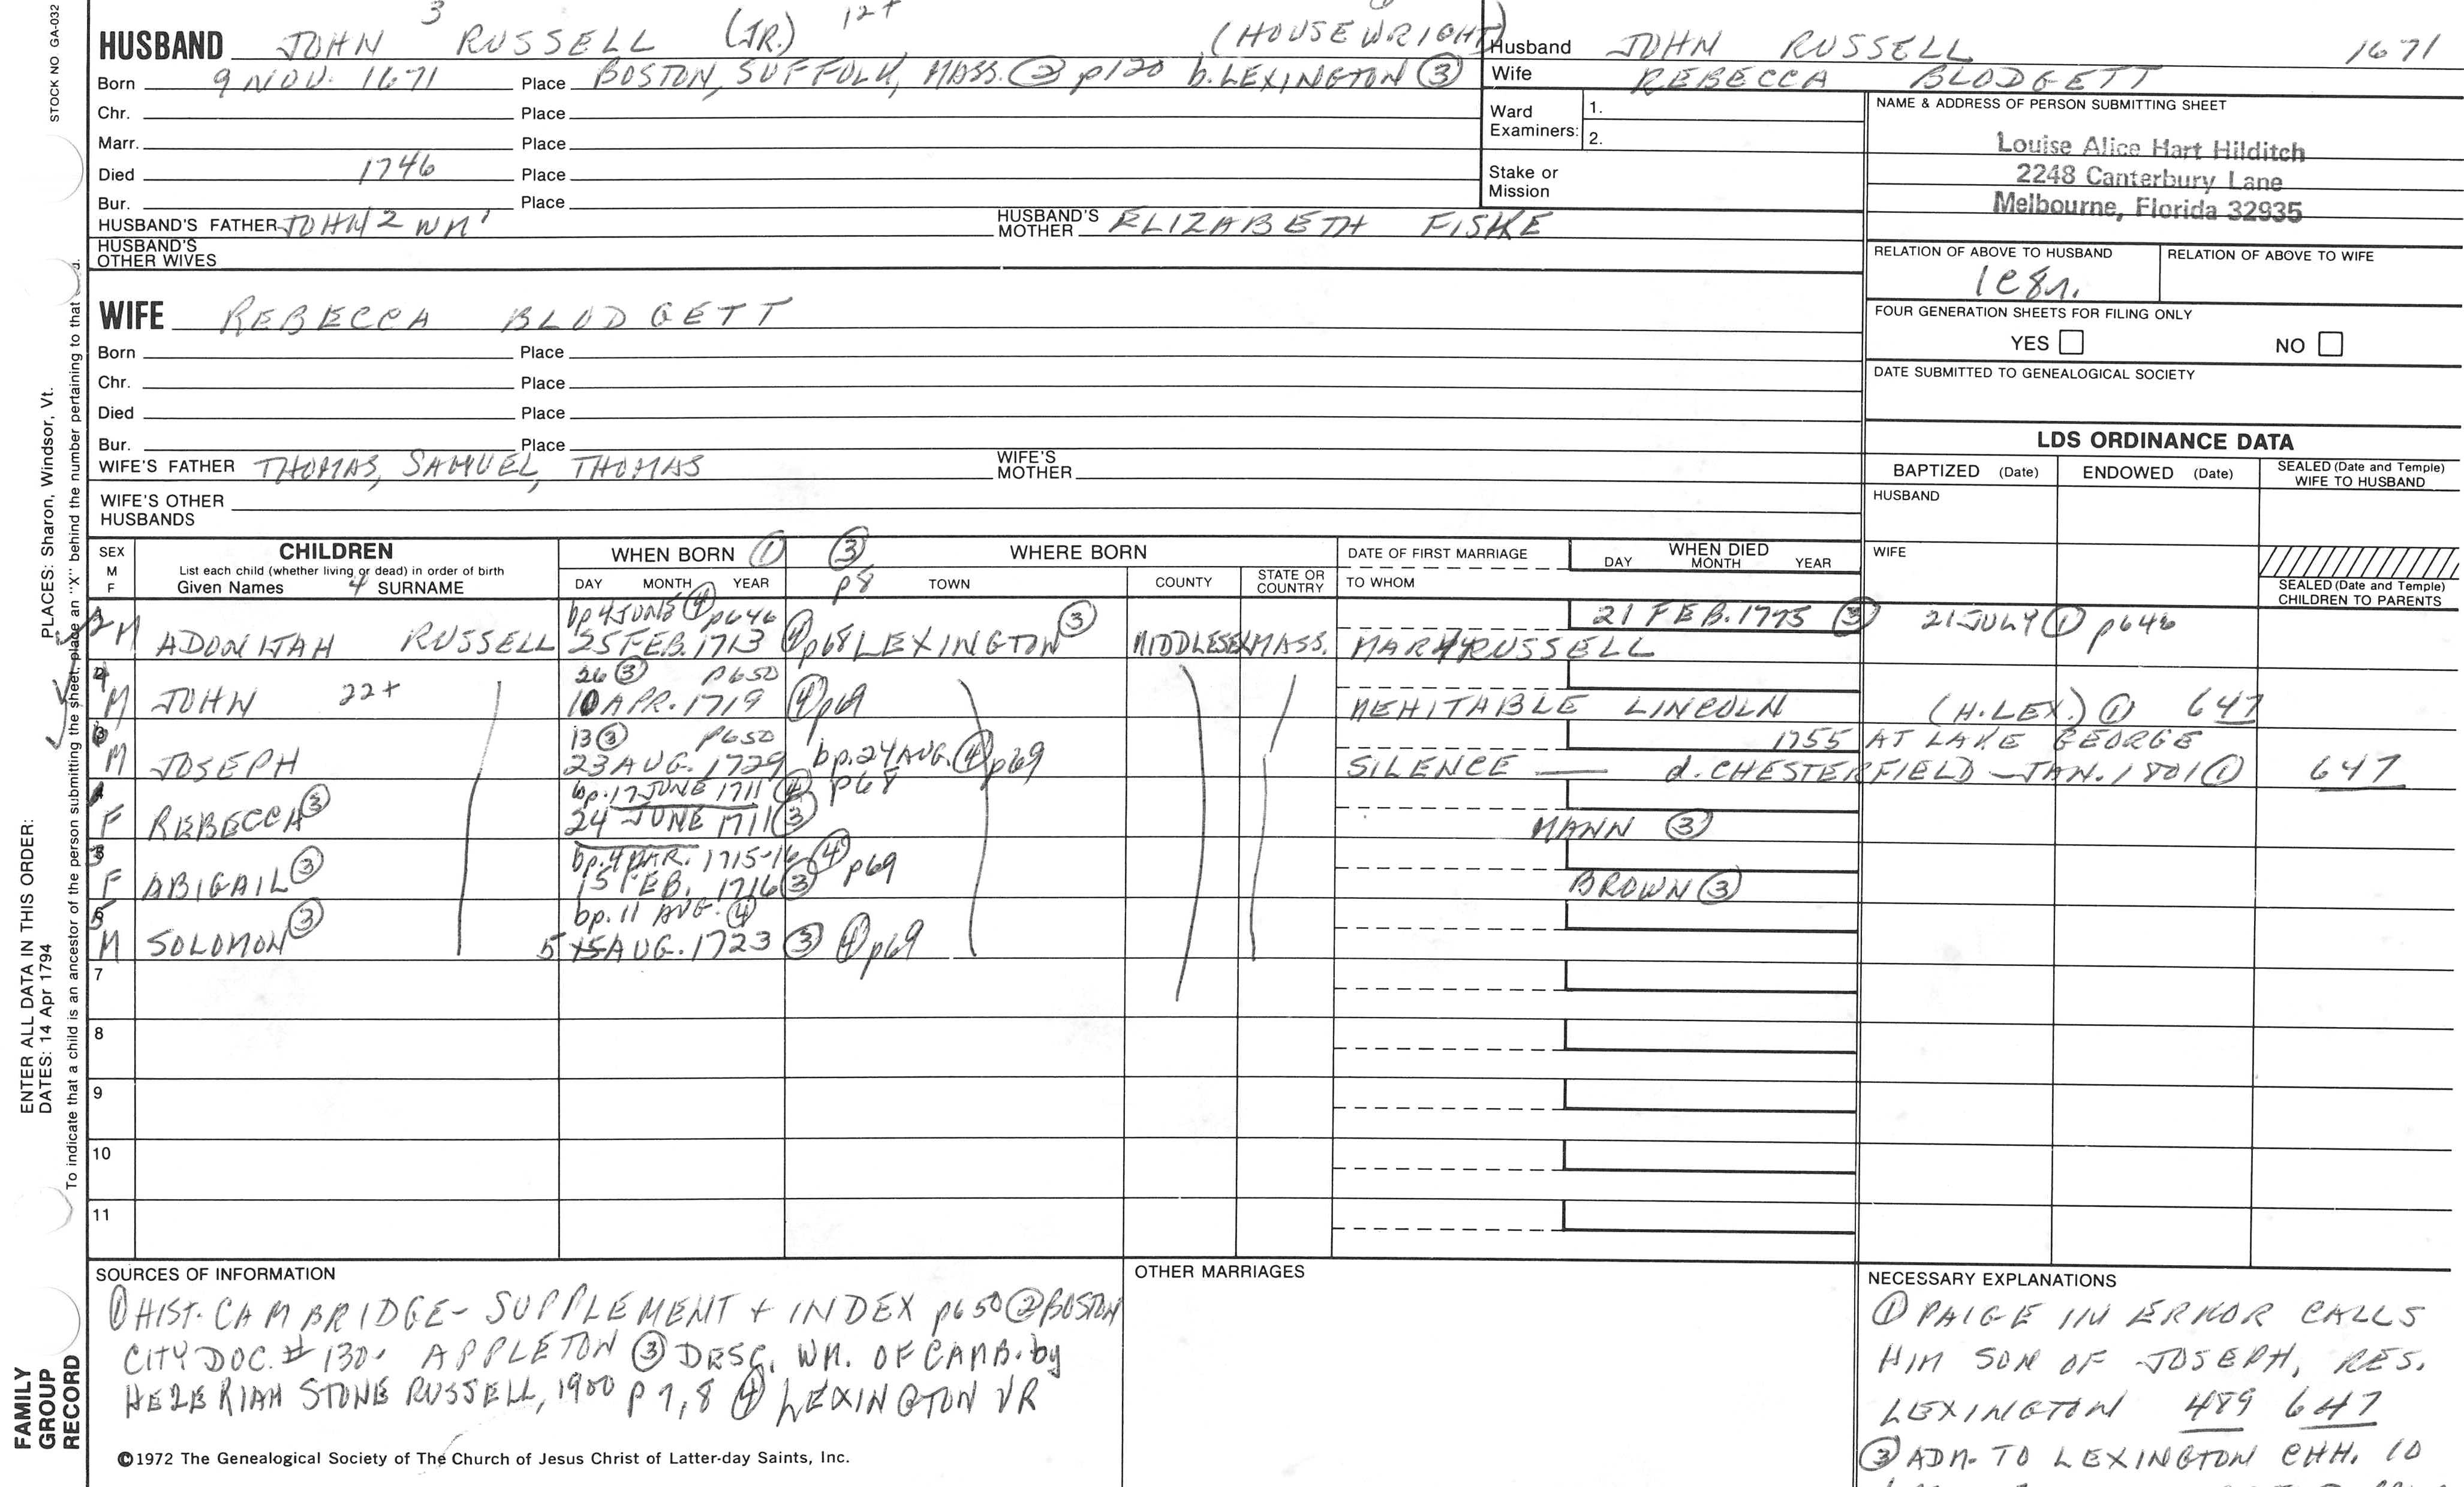 STOCK NO GA-032
3 12+
HUSBAND JOHN RUSSELL (JR.) (HOUSEWRIGHT)
Born 9 NOV. 1671 Place BOSTON, SUFFOLK, MASS. ② p120 b. LEXINGTON ③
Chr. Place
Marr. Place
Died 1746 Place
Bur. Place
HUSBAND'S FATHER JOHN 2 WM 1 HUSBAND'S MOTHER ELIZABETH FISKE
HUSBAND'S OTHER WIVES
Husband JOHN RUSSELL 1671
Wife REBECCA BLODGETT
Ward Examiners: 1.
2.
Stake or Mission
NAME & ADDRESS OF PERSON SUBMITTING SHEET
Louise Alice Hart Hilditch
2248 Canterbury Lane
Melbourne, Florida 32935
RELATION OF ABOVE TO HUSBAND RELATION OF ABOVE TO WIFE
1C8r.
FOUR GENERATION SHEETS FOR FILING ONLY
YES NO
DATE SUBMITTED TO GENEALOGICAL SOCIETY
WIFE REBECCA BLODGETT
Born Place
Chr. Place
Died Place
Bur. Place
WIFE'S FATHER THOMAS, SAMUEL, THOMAS WIFE'S MOTHER
WIFE'S OTHER HUSBANDS
LDS ORDINANCE DATA
BAPTIZED (Date) ENDOWED (Date) SEALED (Date and Temple) WIFE TO HUSBAND
HUSBAND
WIFE
SEALED (Date and Temple) CHILDREN TO PARENTS
SEX M F CHILDREN WHEN BORN ① ③ WHERE BORN DATE OF FIRST MARRIAGE WHEN DIED
List each child (whether living or dead) in order of birth DAY MONTH YEAR p8 TOWN COUNTY STATE OR COUNTRY TO WHOM DAY MONTH YEAR
Given Names 4 SURNAME
bp 4 JUNE ④ p646 ③ 21 FEB. 1775 ③ 21 JULY ① p646
2 M ADONIJAH RUSSELL 25 FEB. 1713 ④ p68 LEXINGTON MIDDLESEX MASS. MARY RUSSELL
26 ③ p650
4 M JOHN 22+ 10 APR. 1719 ④ p69 MEHITABLE LINCOLN (H. LEX.) ① 647
13 ③ p650 1755 AT LAKE GEORGE
M JOSEPH 23 AUG. 1729 bp. 24 AUG. ④ p69 SILENCE — d. CHESTERFIELD – JAN. 1801 ① 647
bp. 17 JUNE 1711 ④ p68
F REBECCA ③ 24 JUNE 1711 ③ MANN ③
bp. 4 MAR. 1715-16 ④
3 F ABIGAIL ③ 15 FEB. 1716 ③ p69 BROWN ③
bp. 11 AUG. ④
5 M SOLOMON ③ 5 15 AUG. 1723 ③ ④ p69
7
8
9
10
11
SOURCES OF INFORMATION
① HIST. CAMBRIDGE – SUPPLEMENT + INDEX p650 ② BOSTON
CITY DOC. # 130. APPLETON ③ DESC. WM. OF CAMB. by
HEZEKIAH STONE RUSSELL, 1900 p 7, 8 ④ LEXINGTON VR
©1972 The Genealogical Society of The Church of Jesus Christ of Latter-day Saints, Inc.
OTHER MARRIAGES
NECESSARY EXPLANATIONS
① PAIGE IN ERROR CALLS
HIM SON OF JOSEPH, RES.
LEXINGTON 489 647
③ ADM. TO LEXINGTON CHH. 10
ENTER ALL DATA IN THIS ORDER:
DATES: 14 Apr 1794 PLACES: Sharon, Windsor, Vt.
To indicate that a child is an ancestor of the person submitting the sheet, place an "X" behind the number pertaining to that
FAMILY
GROUP
RECORD